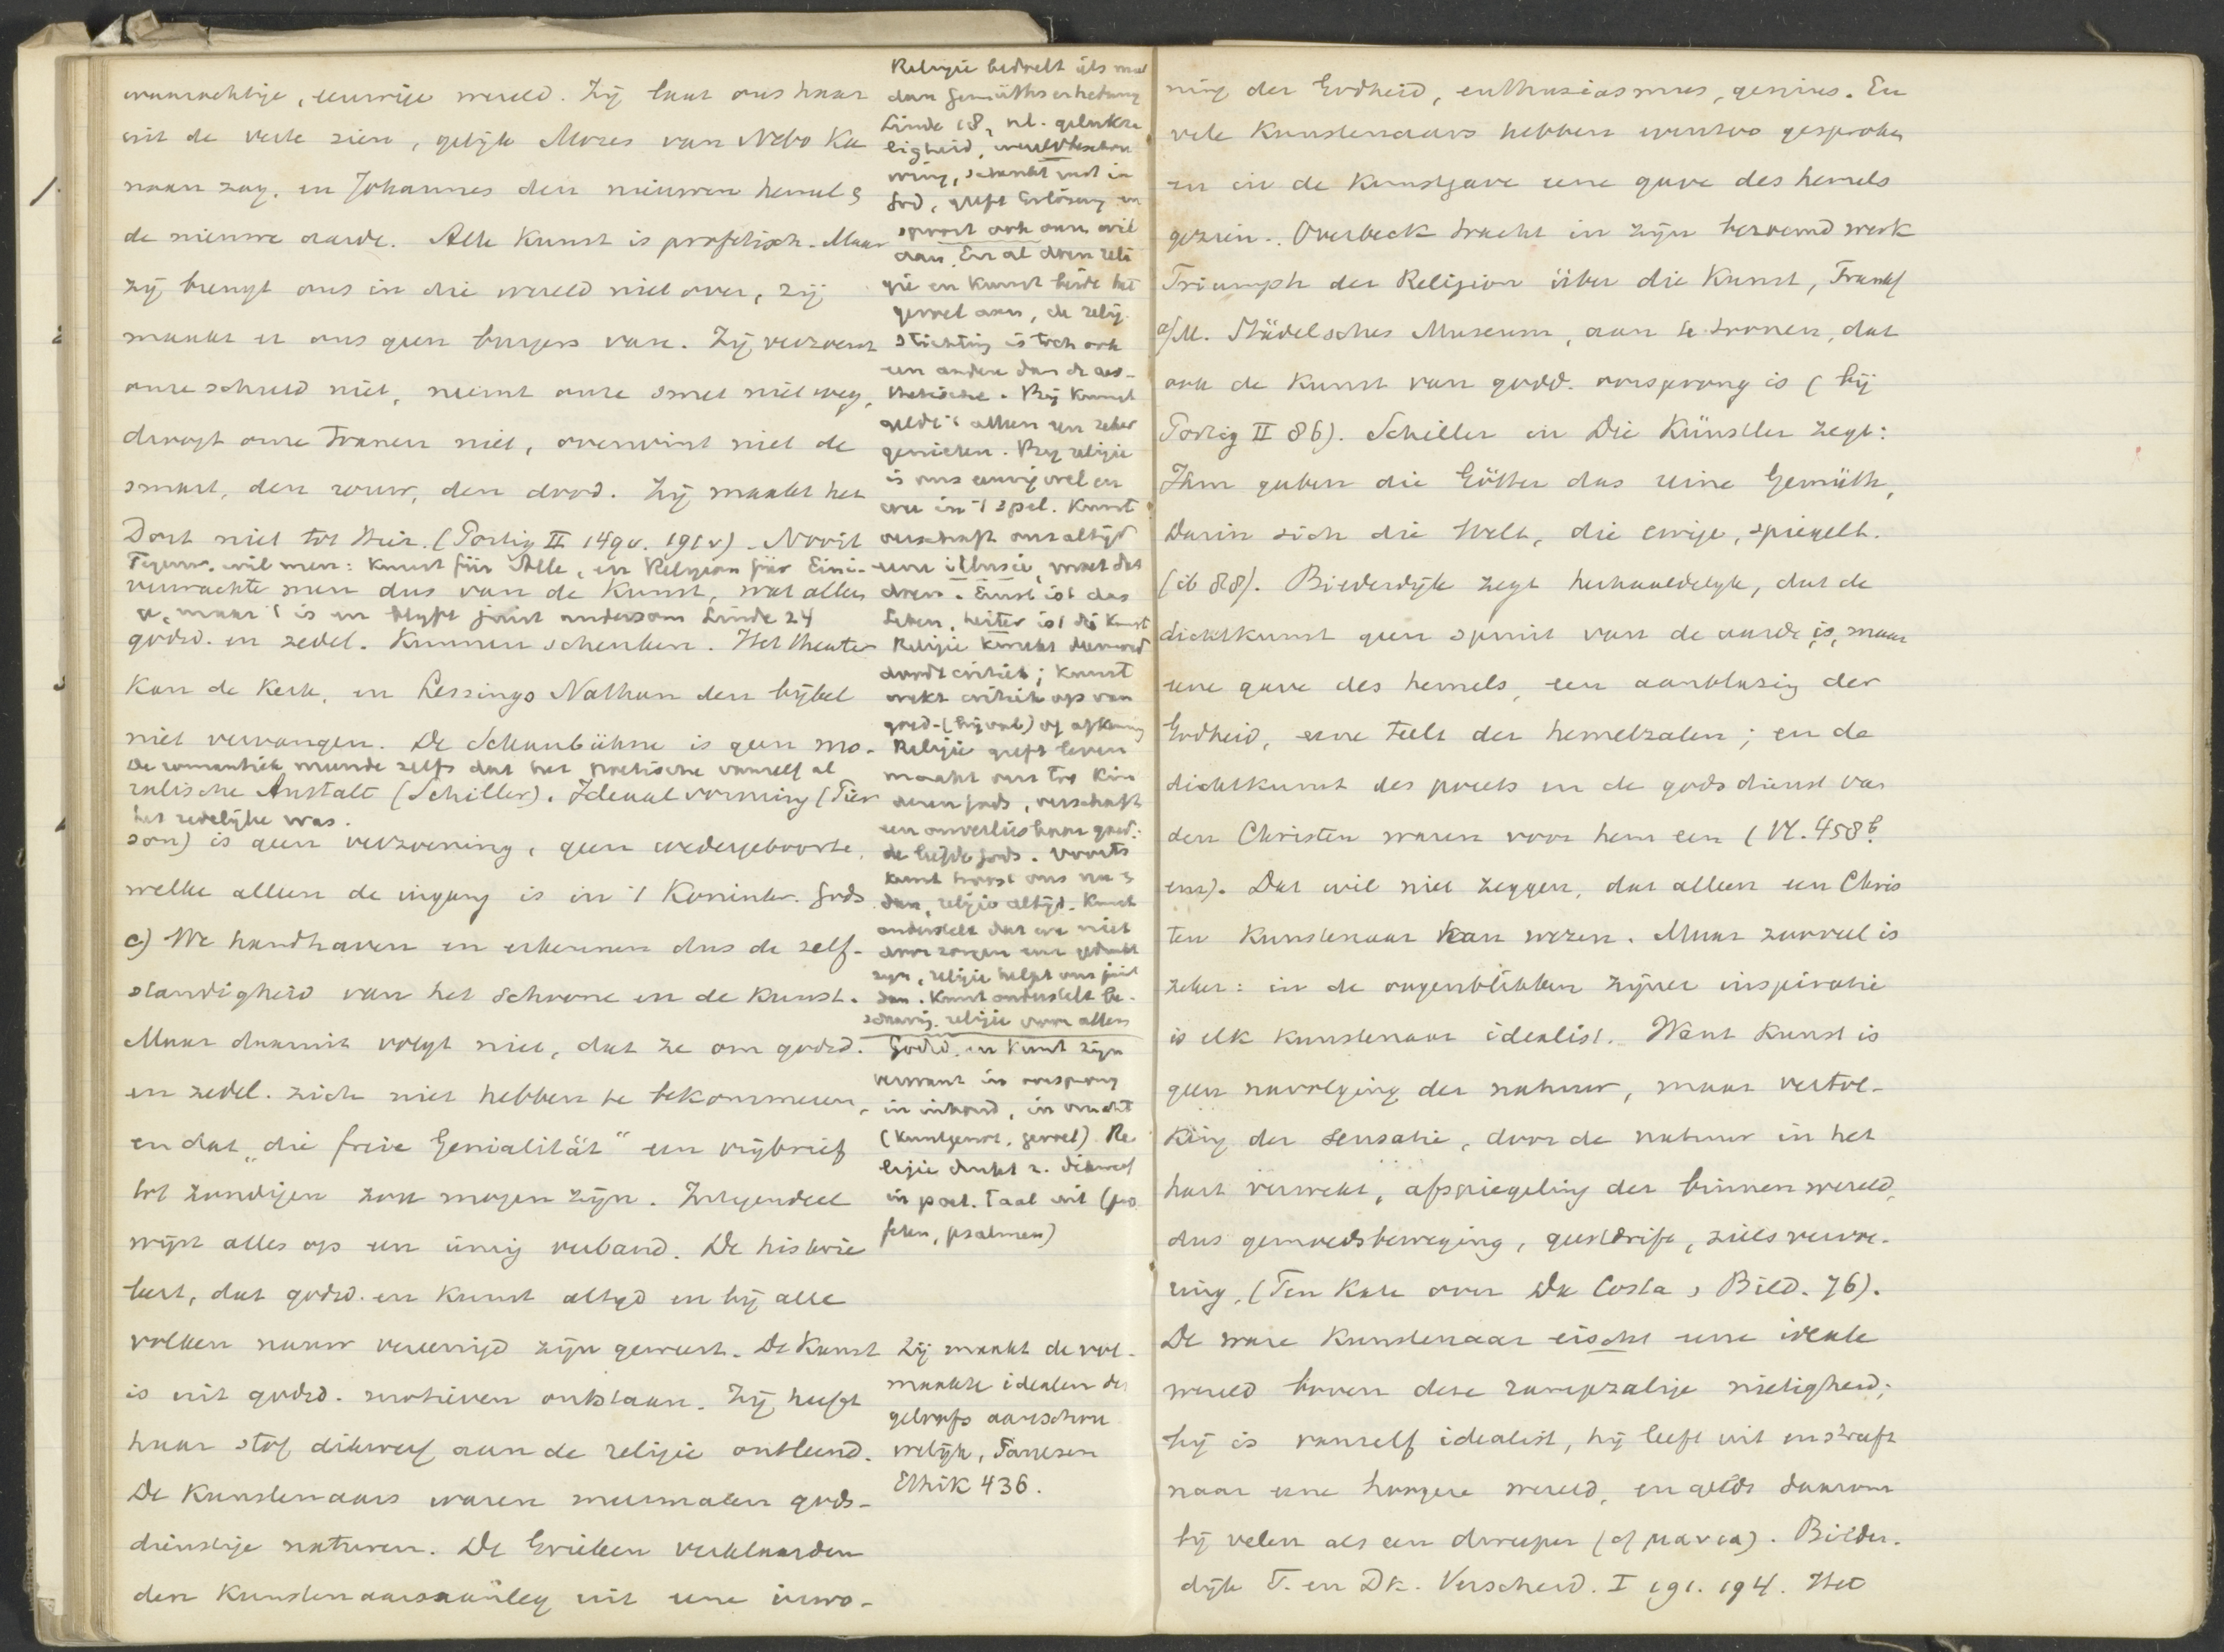 waarachtige, eeuwige wereld. Zij laat ons haar
uit de verte zien, gelijk Mozes van Nebo Ka
naan zag, en Johannes den nieuwen hemel &
de nieuwe aarde. Alle Kunst is profetisch. Maar
zij brengt ons in die wereld niet over, zij
maakt er ons geen burgers van. Zij verzoent
onze schuld niet, neemt onze smet niet weg,
droogt onze tranen niet, overwint niet de
smart, den rouw, den dood. Zij maakt het
Dort niet tot Hier. (Portig II 149v. 191v) Nooit
Tegenw. wil men: Kunst für Alle, en Religion für Eini-
verwachte men dus van de Kunst, wat alleen
ge, maar 't is en blyft juist andersom Linde 24
godsd. en zedel. Kunnen schenken. Het theater
Kan de Kerk, en Lessings Nathan den bijbel
niet vervangen. De Schaubühne is geen mo-
De romantiek meende zelfs dat het poetische vanzelf al
ralische Anstalt (Schiller). Ideaalvorming (Pier
het zedelijke was.
son) is geen verzoening, geen wedergeboorte,
welke alleen de ingang is in 't Koninkr. Gods
c) We handhaven en erkennen dus de zelf-
standigheid van het Schoone en de Kunst.
Maar daaruit volgt niet, dat ze om godsd.
en zedel. zich niet hebben te bekommeren,
en dat „die freie Genialität" een vrijbrief
tot zondigen zou mogen zijn. Integendeel
wijst alles op een innig verband. De historie
leert, dat godsd. en Kunst altyd en bij alle
volken nauw vereenigd zijn geweest. De Kunst
is uit godsd. motieven ontstaan. Zij heeft
haar stof dikwerf aan de religie ontleend.
De Kunstenaars waren meermalen gods-
dienstige naturen. De Grieken verklaarden
den Kunstenaarsaanleg uit eene inwo-
Religie bedoelt iets meer
dan Gemüthserhebung
Linde 18, nl. gelukza
ligheid, wereldbeschou
wing, schenkt rust in
God, geeft Erlösung en
spoort ook onzen wil
aan. En al doen reli
gie en Kunst beide het
gevoel aan, de relig.
stichting is toch ook
een andere dan de aes-
thetische. Bij Kunst
geldt 't alleen een zeker
genieten. Bij religie
is ons eeuwig wel en
wee in 't spel. Kunst
verschaft ons altijd
eene illusie, moet dat
doen. Ernst ist das
Leben, heiter ist die Kunst
Religie
doodt critiek; Kunst
wekt critiek op van
goed- (bijval) of afkeuring
Religie geeft leven
maakt ons tot kin
deren Gods, verschaft
een onverliesbaar goed:
de liefde Gods. Voorts
Kunst troost ons nu &
dan, religie altijd. Kunst
onderstelt dat we niet
door zorgen ter gedrukt
zyn, religie helpt ons juist
dan. Kunst onderstelt be-
schaving, religie voor allen
Godsd. en Kunst zijn
verwant in oorsprong
in inhoud, in vrucht
(Kunstgenot, gevoel) Re
ligie drukt z. dikwerf
in poet. taal uit (pro
feten, psalmen)
Zij maakt de vol-
maakte idealen des
geloofs aanschou
welijk, Paulsen
Ethik 436.
ning der Godheid, enthusiasmus, genius. En
vele Kunstenaars hebben evenzoo gesproken
en in de Kunstgave eene gave des hemels
gezien. Overbeck tracht in zijn beroemd werk
Triumph der Religion über die Kunst, Frankf
a/M. Städelsches Museum, aan te toonen, dat
ook de Kunst van godd. oorsprong is (bij
Portig II 86). Schiller in Die Künstler zegt:
Ihm gaben die Götter das reine Gemüth,
Darin sich die Welt, die ewige, spiegelt.
(ib 88). Bilderdijk zegt herhaaldelijk, dat de
dichtkunst geen spruit van de aarde is, maar
eene gave des hemels, een aanblazing der
Godheid, eene teelt der hemelzalen; en de
dichtkunst des poëts en de godsdienst van
den Christen waren voor hem een (VI. 458b
enz). Dat wil niet zeggen, dat alleen een Chris
ten Kunstenaar kan wezen. Maar zooveel is
zeker: in de oogenblikken zijner inspiratie
is elk Kunstenaar idealist. Want Kunst is
geen navolging der natuur, maar vertol-
king der sensatie, door de natuur in het
hart verwekt, afspiegeling der binnenwereld,
dus gemoedsbeweging, geestdrift, zielsvervoe-
ring. (Ten Kate over Da Costa & Bild. 76).
De ware Kunstenaar eischt eene ideale
wereld boven deze rampzalige nietigheid;
hij is vanzelf idealist, hij leeft uit en streeft
naar eene hoogere wereld, en geldt daarom
bij velen als een dweeper (of μανια). Bilder-
dijk T. en Dk. Verscheid. I 191. 194. Het